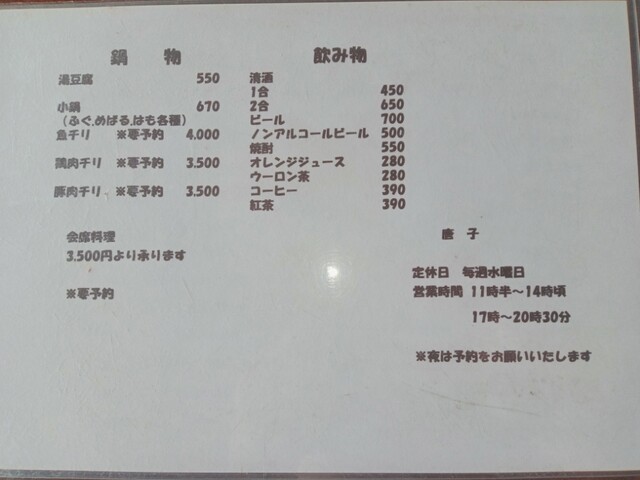 鍋 物
湯豆腐 550
小鍋 670
(ふぐ.めばる.はも各種)
魚チリ ※要予約 4.000
鶏肉チリ ※要予約 3.500
豚肉チリ ※要予約 3.500
会席料理
3.500円より承ります
※要予約
飲み物
清酒
1合 450
2合 650
ビール 700
ノンアルコールビール 500
焼酎 550
オレンジジュース 280
ウーロン茶 280
コーヒー 390
紅茶 390
唐 子
定休日 毎週水曜日
営業時間 11時半～14時頃
17時～20時30分
※夜は予約をお願いいたします